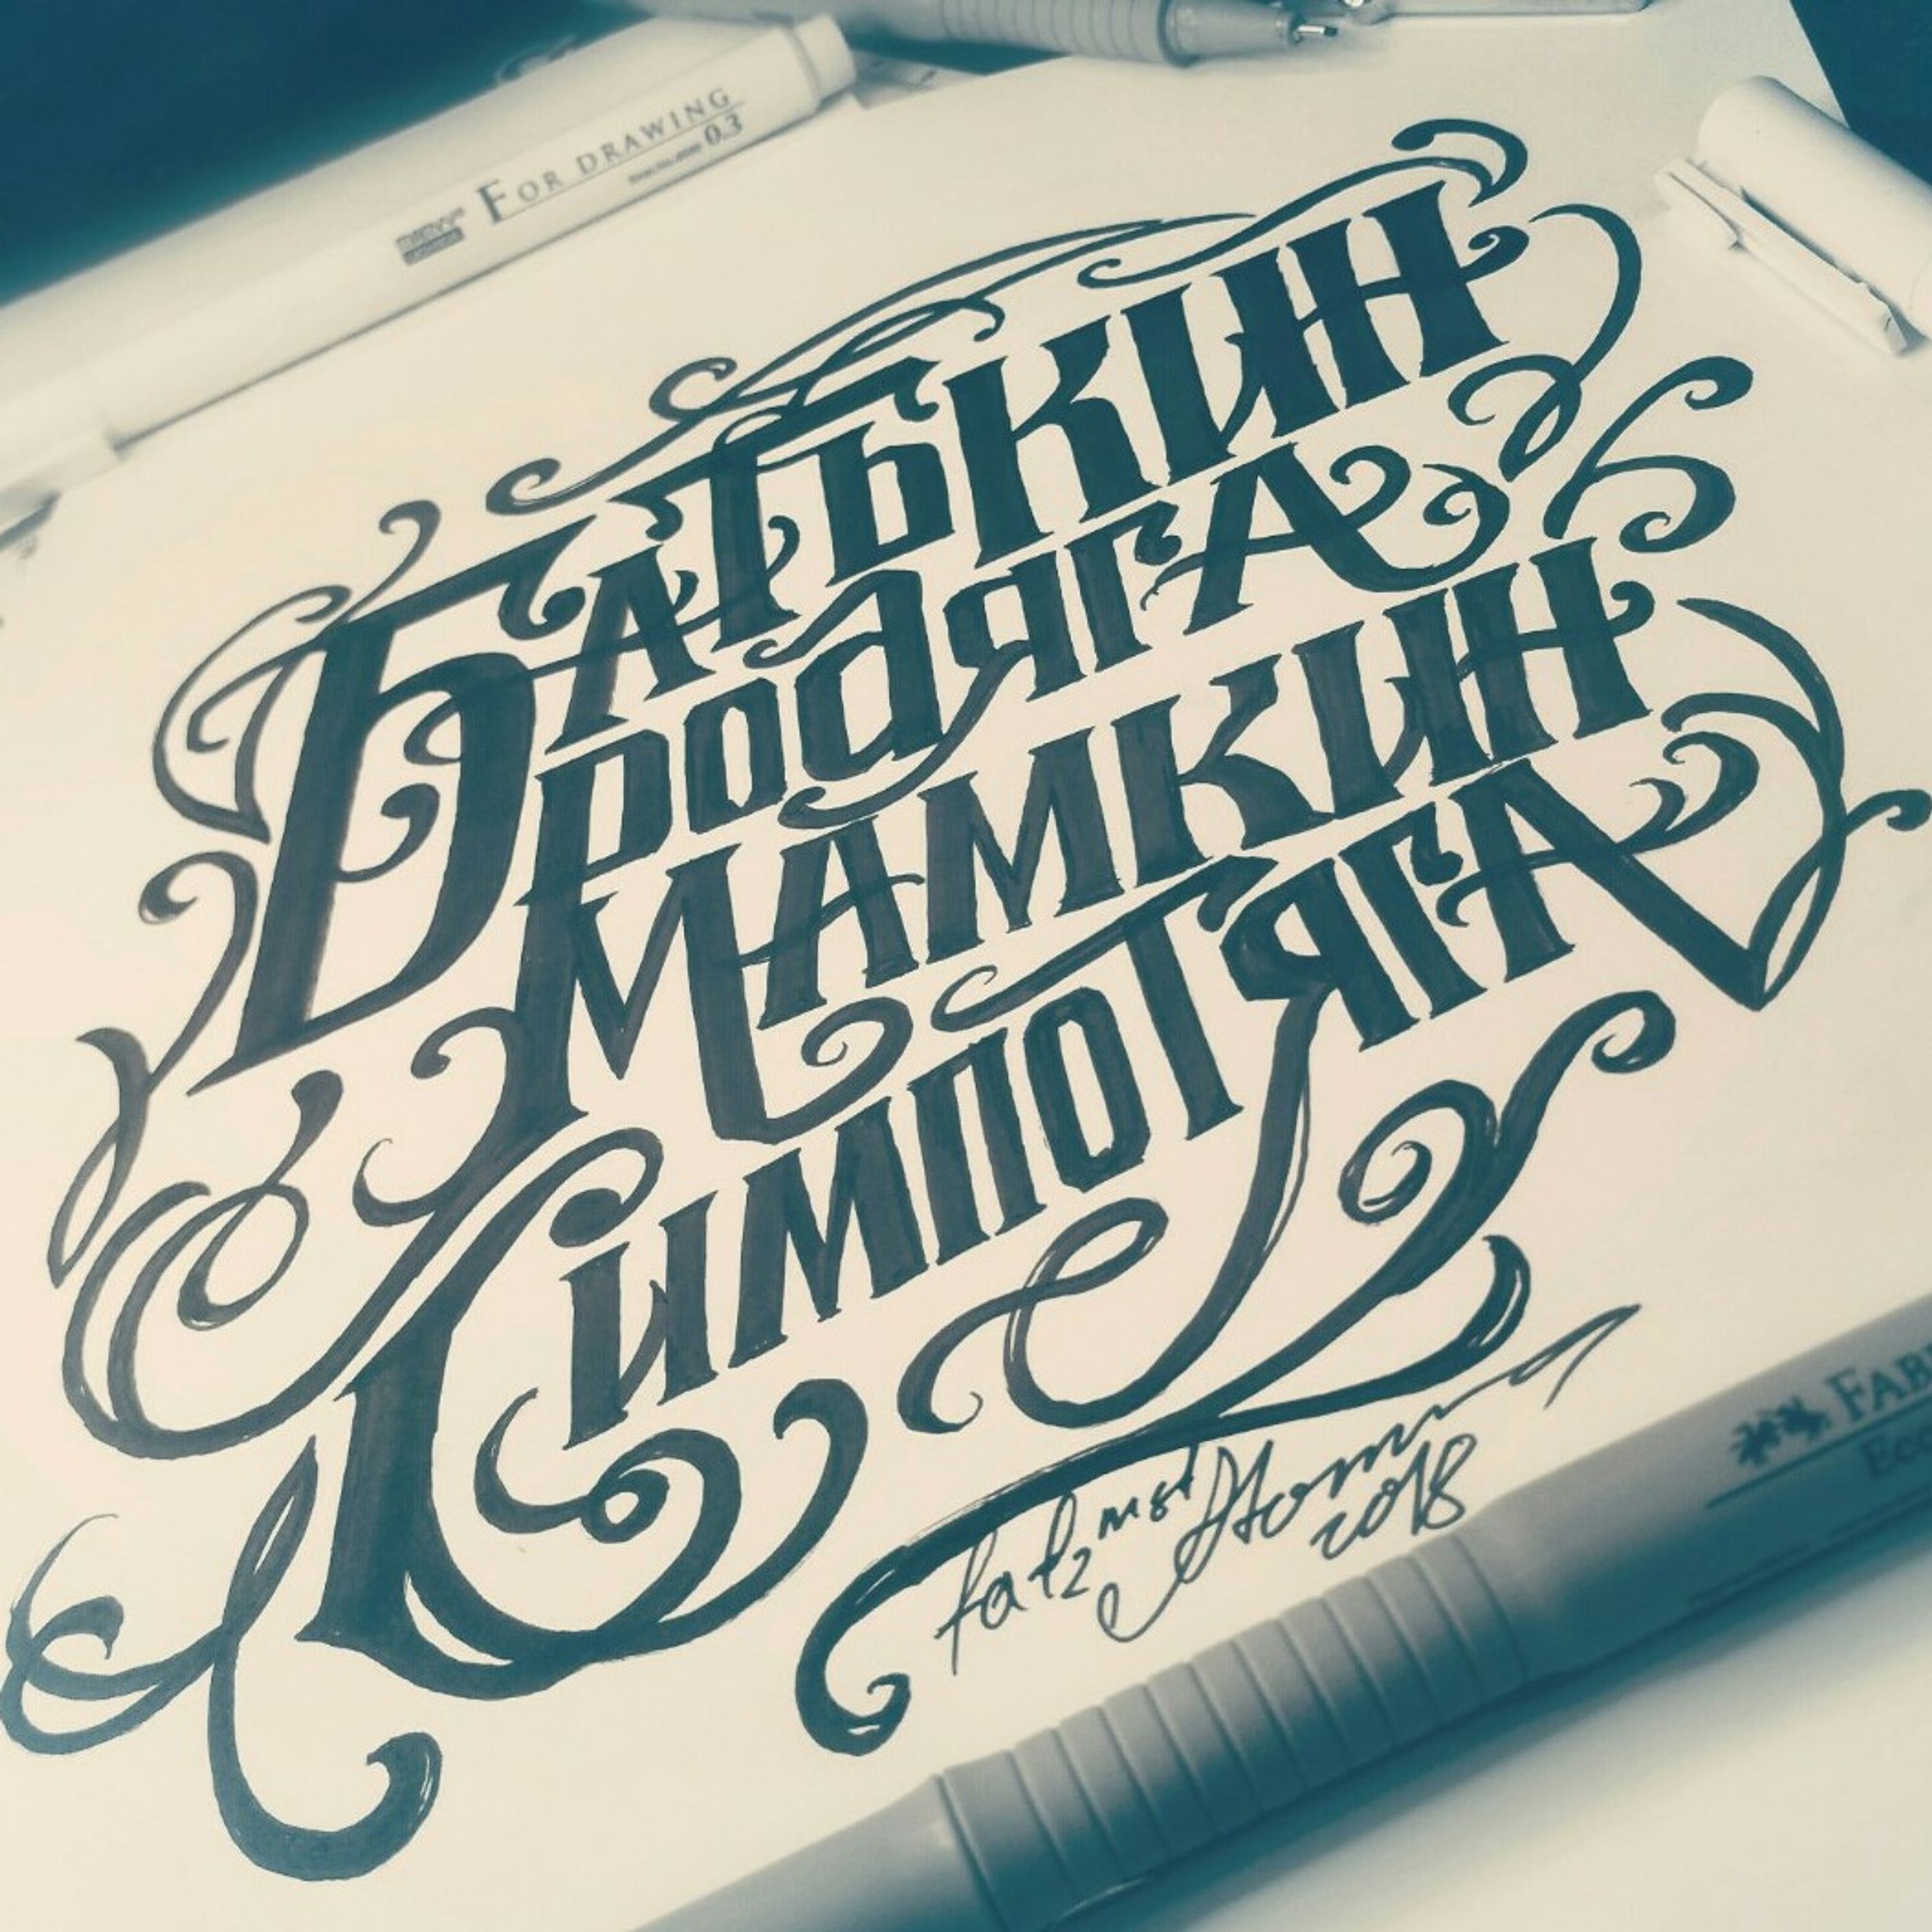 FOR DRAWING
0.3
БАТЬКИН
бродяга
МАМКИН
СИМПОТЯГА
fat2msd
2018
FAB
Eco